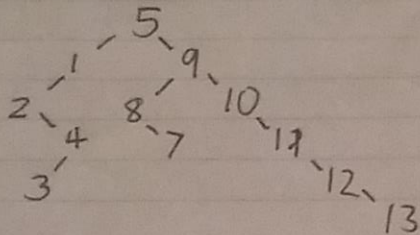 5
1 9
2 8 10
4 7 11
3 12
13